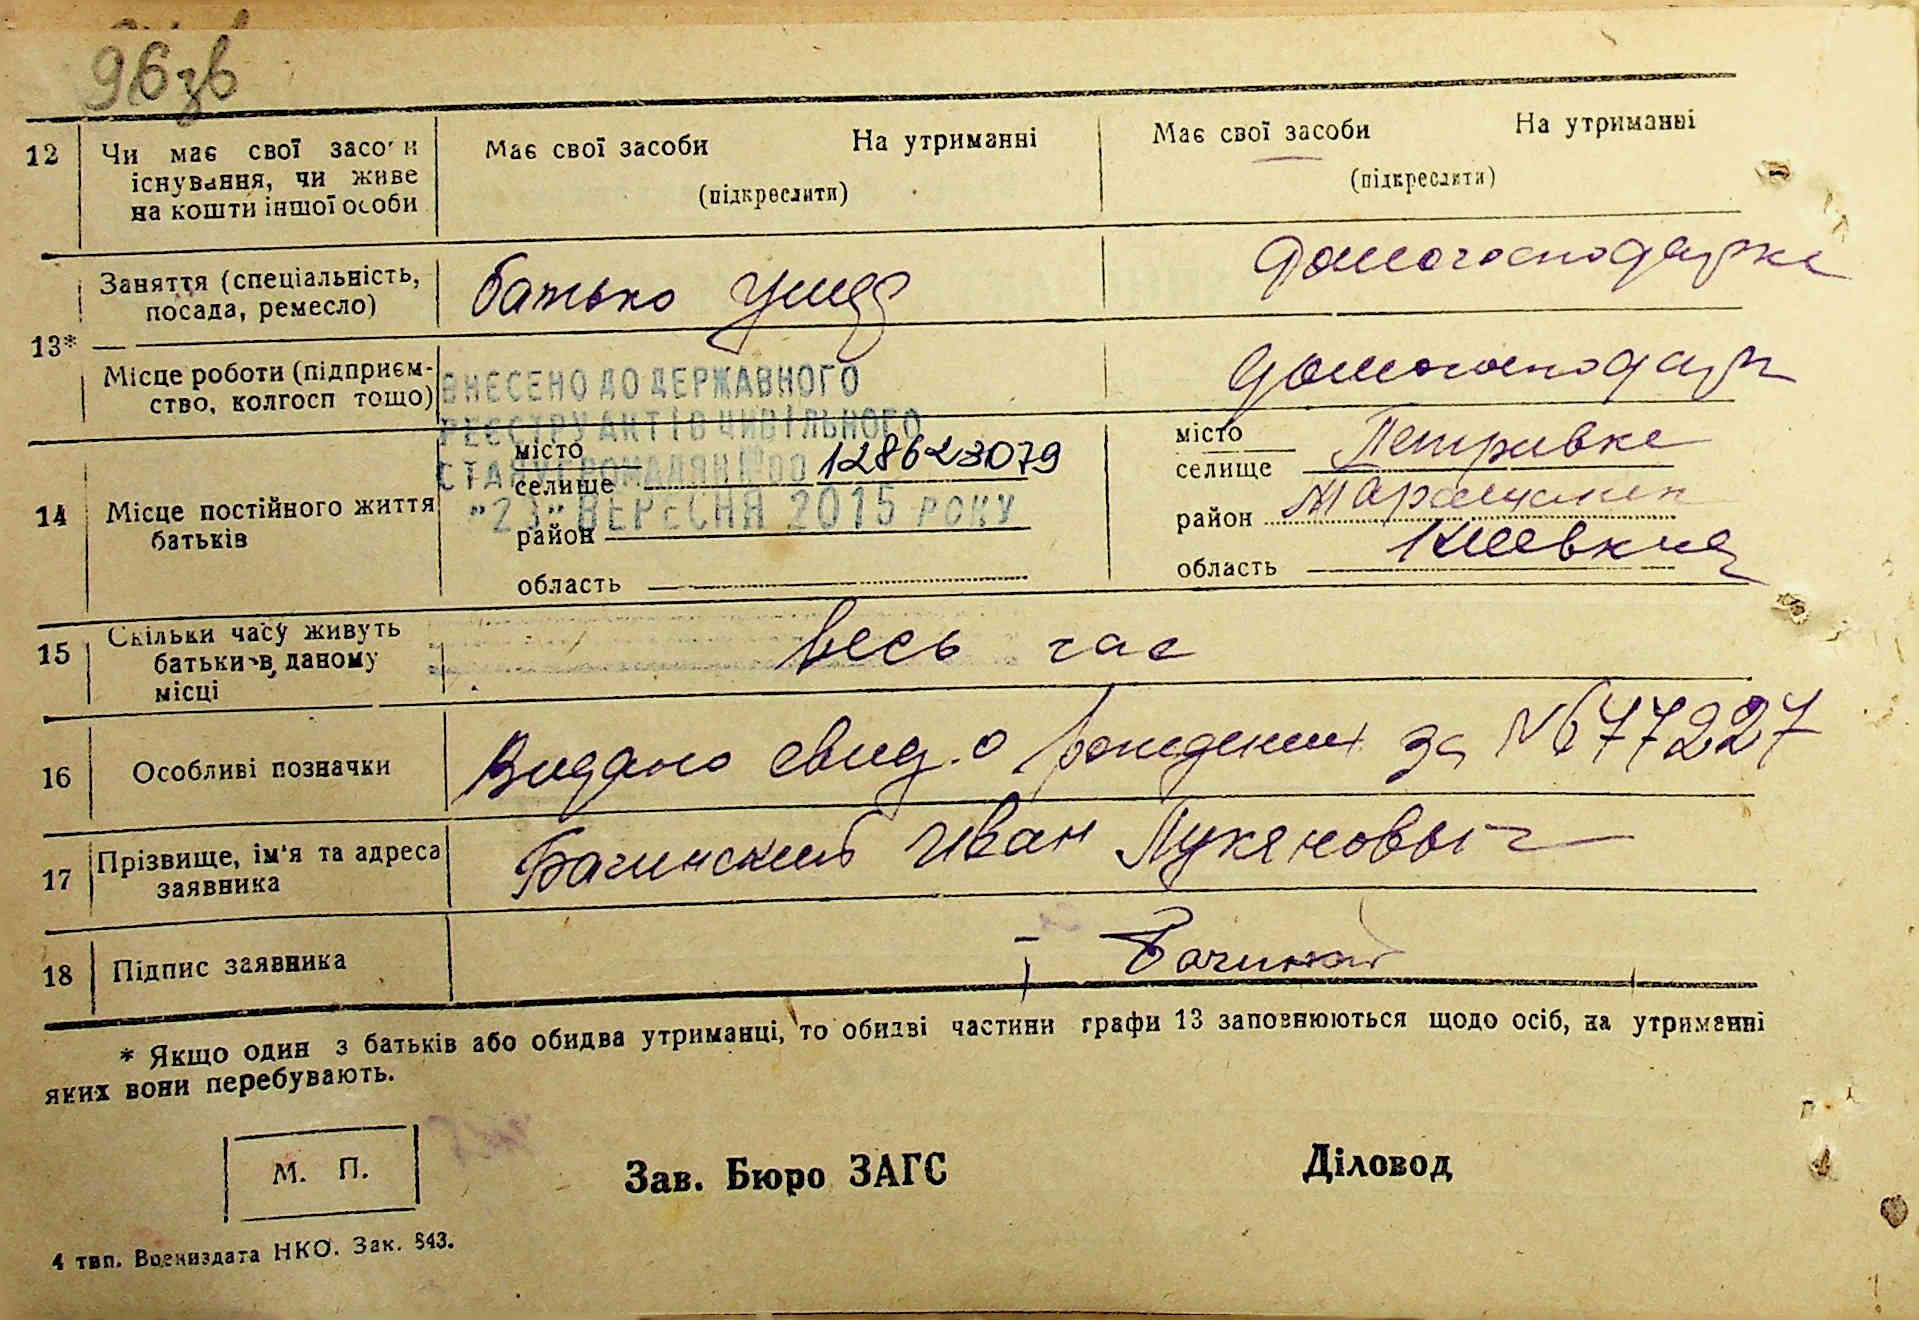 96зв
12 Чи має свої засоби Має свої засоби На утриманні Має свої засоби На утриманні
існування, чи живе (підкреслити) (підкреслити)
на кошти іншої особи
Заняття (спеціальність, батько Домогосподарка
посада, ремесло)
13*
Місце роботи (підприєм- домогосподар
ство, колгосп тощо)
ВНЕСЕНО ДО ДЕРЖАВНОГО
РЕЄСТРУ АКТІВ ЦИВІЛЬНОГО
СТАНУ ГРОМАДЯН № 00 128623079
"23" ВЕРЕСНЯ 2015 РОКУ
14 Місце постійного життя
батьків
місто
селище
район
область
місто
селище Петривка
район Таращанск
область Киевская
15 Скільки часу живуть весь час
батьки в даному
місці
16 Особливі позначки Видано свид. о рождении за № 677227
17 Прізвище, ім'я та адреса Бачинский Иван Лукянович
заявника
18 Підпис заявника
* Якщо один з батьків або обидва утриманці, то обидві частини графи 13 заповнюються щодо осіб, на утриманні
яких вони перебувають.
М. П.
Зав. Бюро ЗАГС Діловод
4 тип. Воениздата НКО. Зак. 843.